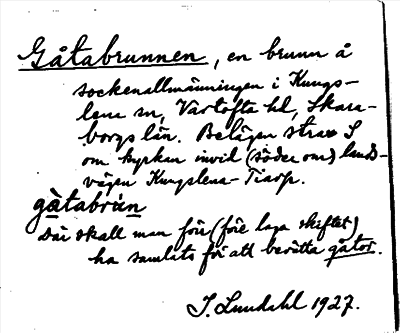 Gåtabrunnen, en brunn å
sockenallmänningen i Kungs-
lena sn, Vartofta hd, Skara-
borgs län. Belägen strax S
om kyrkan invid (söder om) lands-
vägen Kungslena-Tiarp.
gåtabrùn
Där skall man förr (före laga skiftet)
ha samlats för att berätta gåtor.
J. Lundahl 1927.